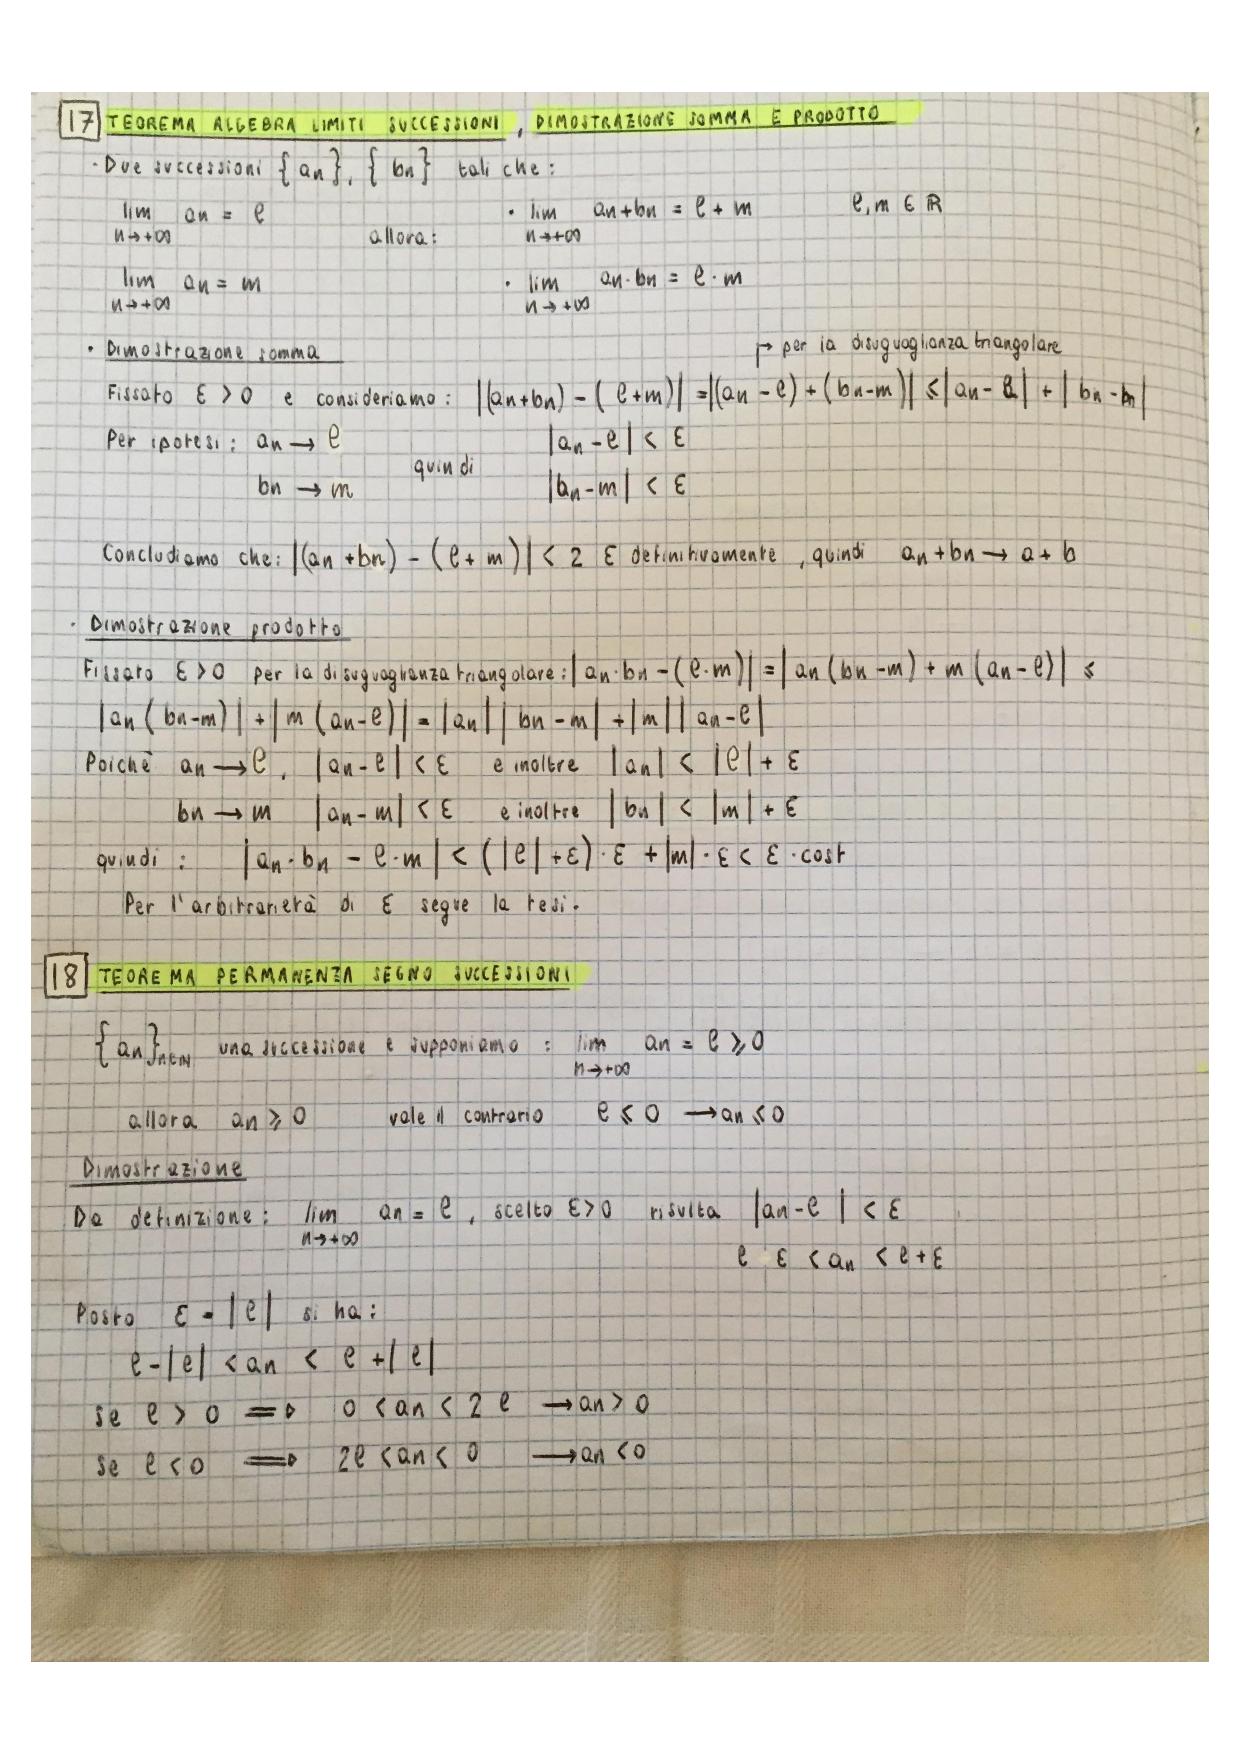 17 TEOREMA ALGEBRA LIMITI SUCCESSIONI, DIMOSTRAZIONE SOMMA E PRODOTTO
· Due successioni {an}, {bn} tali che:
lim n→+∞ an = ℓ allora: · lim n→+∞ an+bn = ℓ + m ℓ, m ∈ ℝ
lim n→+∞ an = m · lim n→+∞ an·bn = ℓ·m
· Dimostrazione somma ↱ per la disuguaglianza triangolare
Fissato ε > 0 e consideriamo: |(an+bn) - (ℓ+m)| = |(an-ℓ)+(bn-m)| ≤ |an-ℓ| + |bn-m|
Per ipotesi: an → ℓ quindi |an-ℓ| < ε
bn → m |bn-m| < ε
Concludiamo che: |(an+bn) - (ℓ+m)| < 2 ε definitivamente, quindi an+bn → a+b
· Dimostrazione prodotto
Fissato ε>0 per la disuguaglianza triangolare: |an·bn-(ℓ·m)| = |an(bn-m) + m(an-ℓ)| ≤
|an(bn-m)| + |m(an-ℓ)| = |an||bn-m| + |m||an-ℓ|
Poichè an → ℓ, |an-ℓ| < ε e inoltre |an| < |ℓ| + ε
bn → m |an-m| < ε e inoltre |bn| < |m| + ε
quindi: |an·bn - ℓ·m| < (|ℓ|+ε)·ε + |m|·ε < ε·cost
Per l'arbitrarietà di ε segue la tesi.
18 TEOREMA PERMANENZA SEGNO SUCCESSIONI
{an}n∈ℕ una successione e supponiamo: lim n→+∞ an = ℓ ≥ 0
allora an ≥ 0 vale il contrario ℓ ≤ 0 → an ≤ 0
Dimostrazione
Da definizione: lim n→+∞ an = ℓ, scelto ε>0 risulta |an-ℓ| < ε
ℓ ε < an < ℓ+ε
Posto ε = |ℓ| si ha:
ℓ-|ℓ| < an < ℓ+|ℓ|
se ℓ > 0 ⇒ 0 < an < 2ℓ → an > 0
se ℓ < 0 ⇒ 2ℓ < an < 0 → an < 0